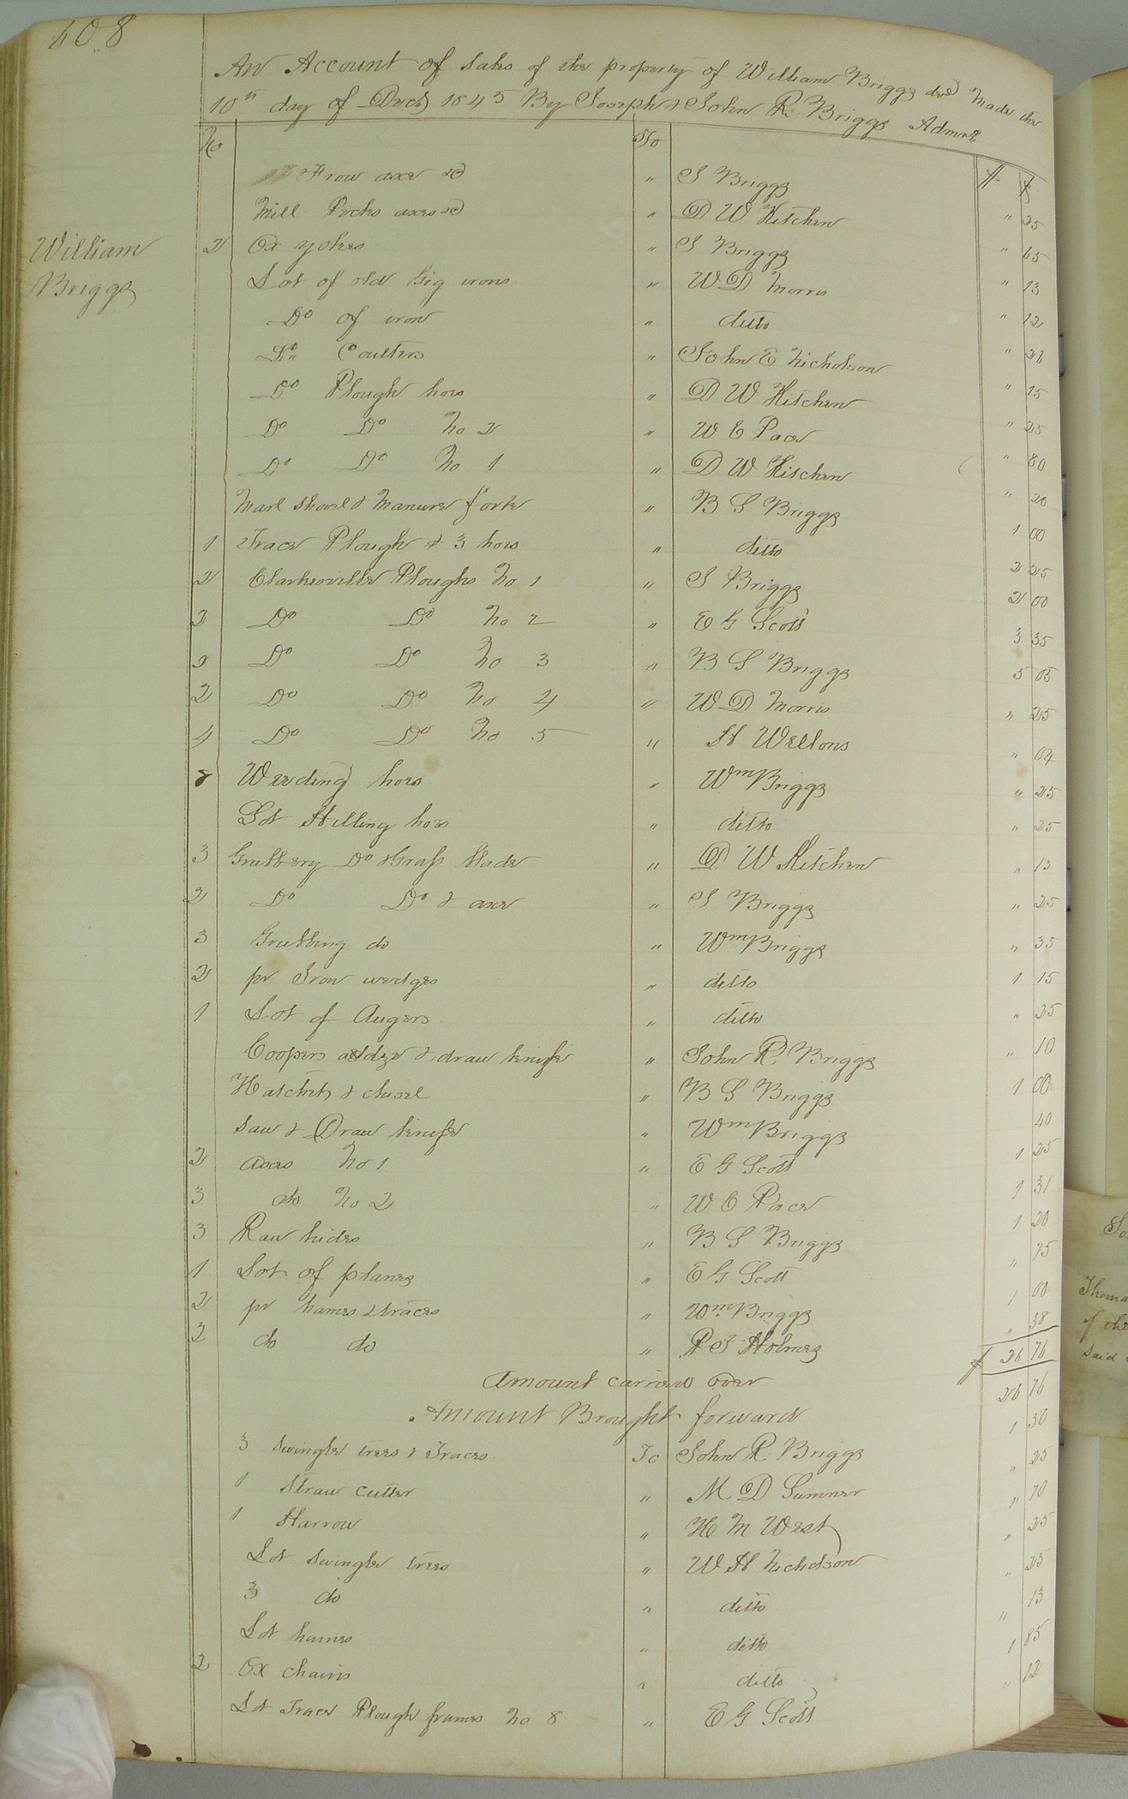 408
An Account of Sales of the property of William Briggs decd Made the
10th day of Decr 1845 By Joseph & John R. Briggs Admrs
William
Briggs
No To $ ¢
Frow axe &c " S Briggs " 25
Mill Pecks axes &c " D W Kitchen " 65
2 Ox yokes " S Briggs " 13
Lot of old Gig irons " W D Morris " 12
Do of iron " ditto " 26
Do Coulters " John E Nicholson " 15
Do Plough hoes " D W Kitchen " 25
Do Do No 2 " W E Pace " 80
Do Do No 1 " D W Kitchen " 20
Marl Shovel & Manure fork " B S Briggs 1 00
1 Trace Plough & 3 hoes " ditto 2 25
2 Clarksville Ploughs No 1 " S Briggs 2 00
2 Do Do No 2 " E G Scott 3 35
2 Do Do No 3 " B S Briggs 5 05
2 Do Do No 4 " W D Morris " 25
4 Do Do No 5 " H Wellons " 04
8 Weeding hoes " Wm Briggs " 25
Lot Hilling hoes " ditto " 25
3 Grubbing Do & Grass blade " D W Kitchen " 13
2 Do Do & axe " S Briggs " 25
3 Grubbing do " Wm Briggs " 35
2 pr Iron wedges " ditto 1 15
1 Lot of Augers " ditto " 25
Coopers addze & draw knife " John R. Briggs " 10
Hatchet & chisel " B S Briggs 1 00
Saw & Draw knife " Wm Briggs 40
2 axes No 1 " E G Scott 1 25
3 do No 2 " W E Pace 1 31
3 Raw hides " B S Briggs 1 20
1 Lot of planes " E G Scott " 75
2 pr hames & traces " Wm Briggs 1 00
2 do do " R S Holmes " 38
$ 26 76
Amount carried over 26 76
Amount Brought forward
3 Swingle trees & Traces To John R Briggs 1 30
1 Straw Cutter " M D Sumner " 25
1 Harrow " H M West " 70
Lot Swingle trees " W H Nicholson " 25
3 do " ditto " 25
Lot hames " ditto " 13
2 Ox chains " ditto 1 85
Lot Trace Plough frames No 8 " E G Scott " 12
Thoma
of the
said